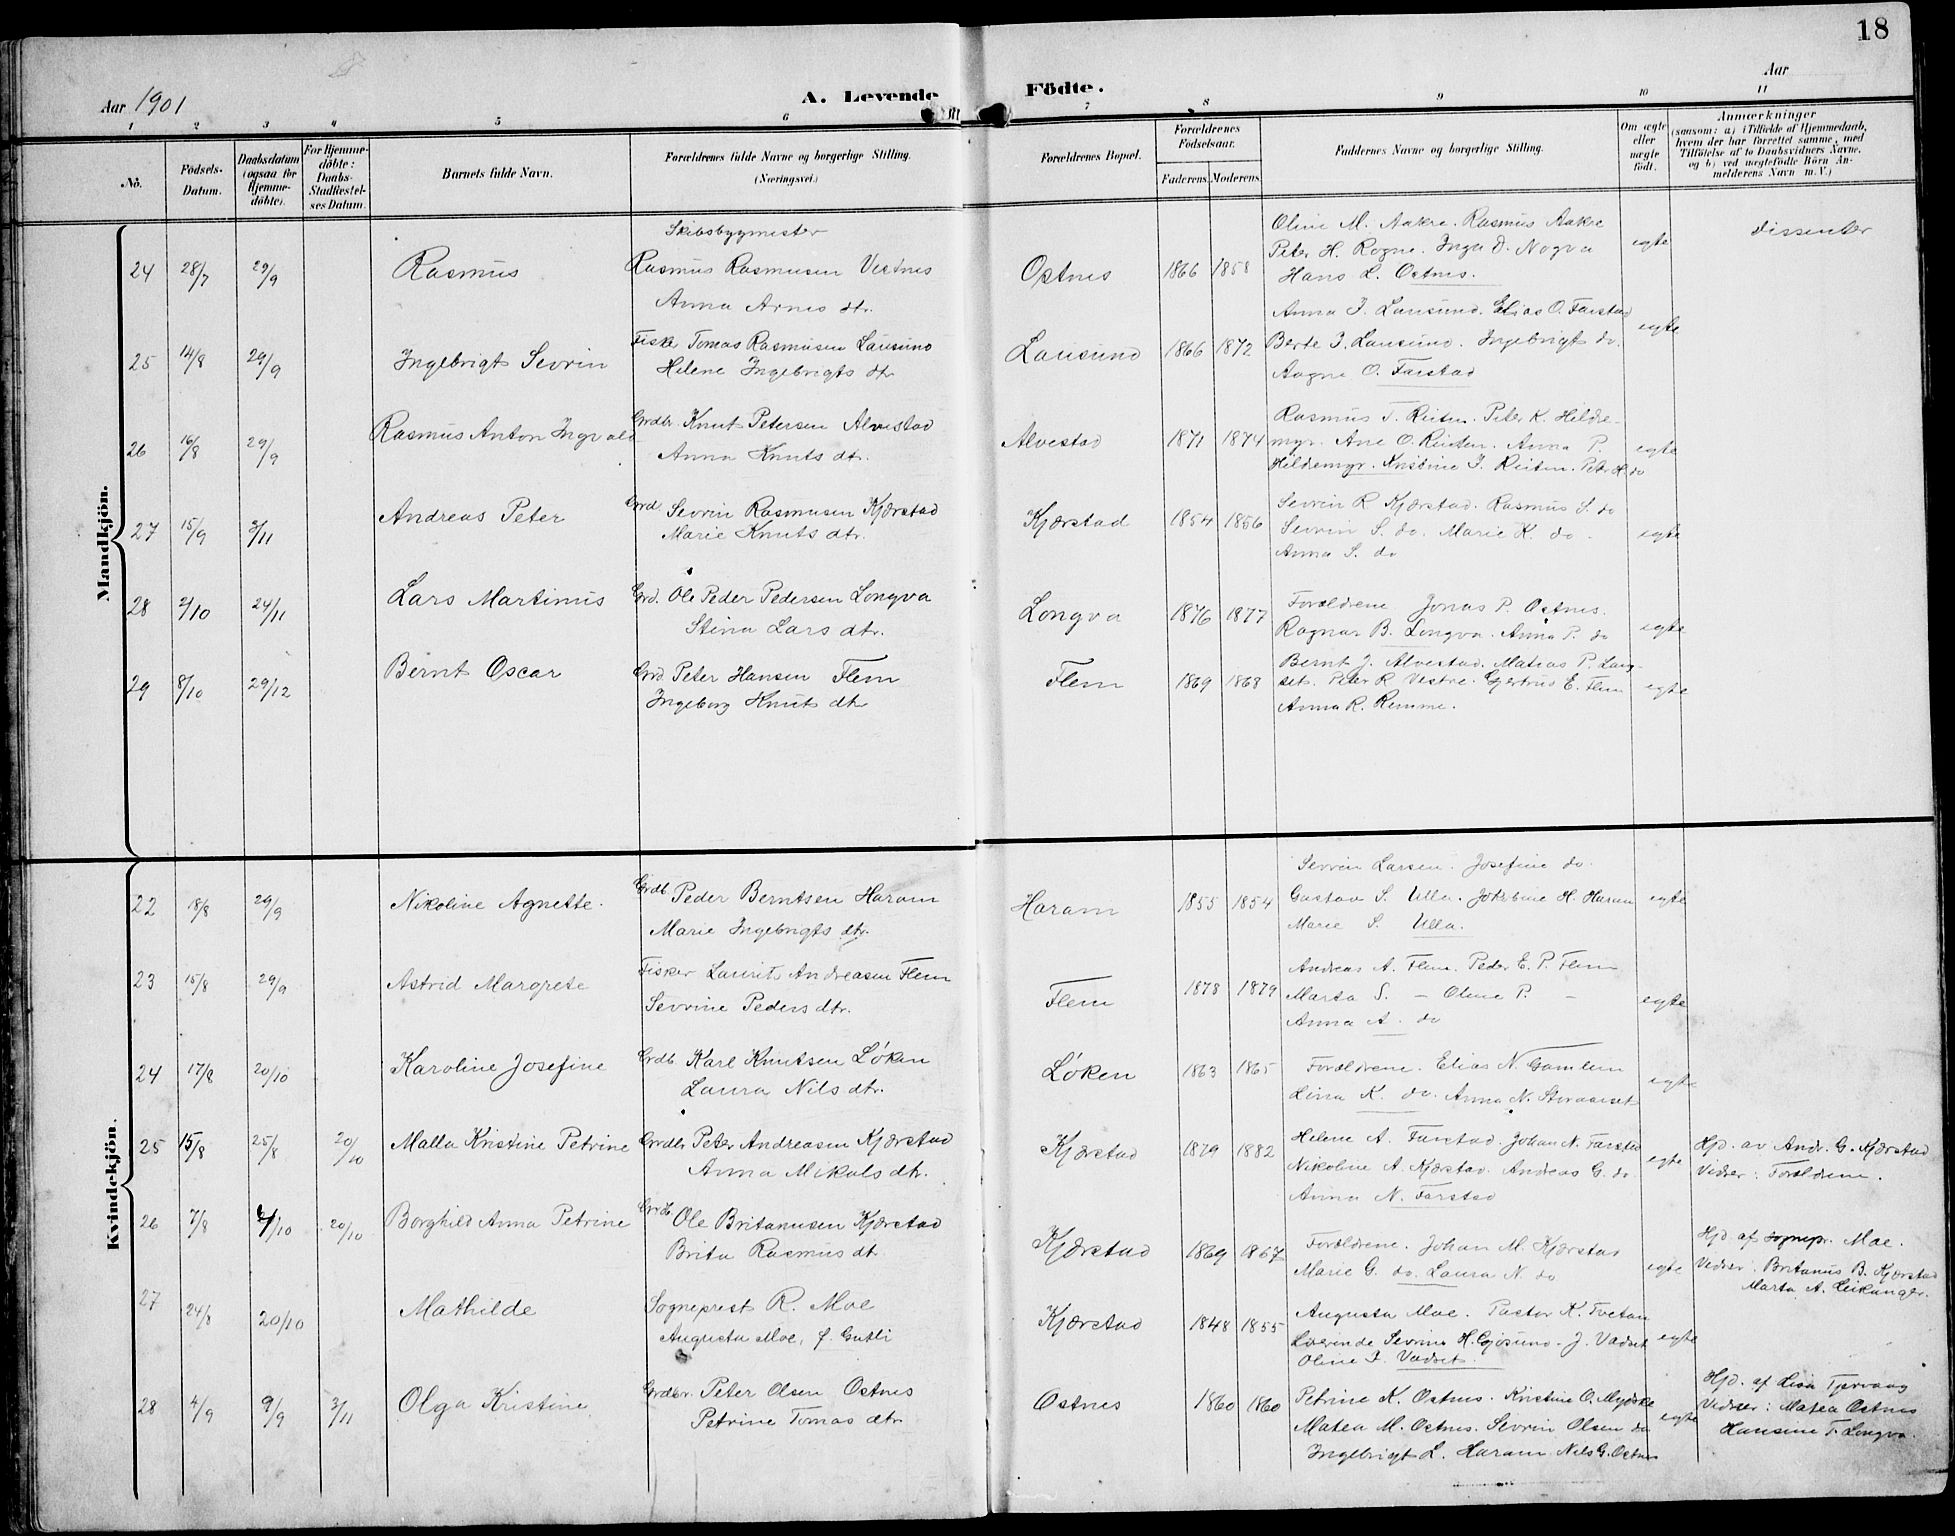 18
Aar 1901
A. Levende Födte.
Aar
1 2 3 4 5 6 7 8 9 10 11
Nô. Födsels-Datum. Daabsdatum (ogsaa for Hjemme-döbte). For Hjemme-döbte: Daabs-Stadfæstel-ses Datum. Barnets fulde Navn. Forældrenes fulde Navne og borgerlige Stilling. (Næringsvei.) Forældrenes Bopæl. Forældrenes Födselsaar. Faderens. Moderens. Faddernes Navne og borgerlige Stilling. Om ægte eller uægte födt. Anmærkninger (saasom: a) i Tilfælde af Hjemmedaab, hvem der har forrettet samme, med Tilföielse af to Daabsvidners Navne, og b) ved uægtefödte Börn An-melderens Navn m. V.)
Mandkjön.
24 28/7 29/9 Rasmus
Skibsbygmester
Rasmus Rasmusen Vestnes
Anna Arnes dtr.
Ostnes 1866 1858
Oline M. Aakre. Rasmus Aakre
Peter H. Rogne. Inga O. Nogva
Hans L. Ostnes.
egte
dissenter
25 14/8 29/9 Ingebrigt Sevrin
Fisker Tomas Rasmusen Lausund
Helene Ingebrigts dtr
Lausund 1866 1872
Anna I. Lausund. Elias O. Farstad
Berte I. Lausund. Ingebrigt do.
Aagne O. Farstad
egte
26 16/8 29/9 Rasmus Anton Ingvald
Grdbr. Knut Petersen Alvestad
Anna Knuts dtr.
Alvestad 1871 1874
Rasmus T. Reiten. Peter K. Hildre-
myr. Ane O. Reiten. Anna P.
Hildremyr. Kristine I. Reiten. Peter H. do
egte
27 15/9 3/11 Andreas Peter
Grd. Sevrin Rasmusen Kjærstad
Marie Knuts dtr.
Kjærstad 1854 1856
Sevrin R Kjærstad. Rasmus S. do
Sevrin S. do. Marie K. do.
Anna S. do
egte
28 2/10 24/11 Lars Martinus
Grd. Ole Peder Pedersen Longva
Stina Lars dtr.
Longva 1876 1877
Forældrene Jonas P. Ostnes.
Ragnar B. Longva. Anna P. do
egte
29 8/10 29/12 Bernt Oscar
Grd Peter Hansen Flem
Ingeborg Knuts dtr
Flem 1869 1868
Bernt J. Alvestad. Matias P. Lang-
set. Peter R Vestre. Gjertrud E. Flem
Anna R. Remme.
egte
Kvindekjön.
22 18/8 29/9 Nikoline Agnette.
Grdb. Peder Berntsen Haram
Marie Ingebrigts dtr.
Haram 1855 1854
Sevrin Larsen. Josefine do.
Gustav S. Ulla. Jokobine H. Haram
Marie S. Ulla.
egte
23 15/8 29/9 Astrid Margrete
Fisker Laurits Andreasen Flem
Sevrine Peders dtr.
Flem 1878 1879
Andreas A. Flem. Peder E. P. Flem
Marta S. – Oline P. –
Anna A. do
egte
24 17/8 20/10 Karoline Josefine
Grdb. Karl Knutsen Løken
Laura Nils dtr.
Løken 1863 1865
Forældrene. Elias N. Gamlem
Lina K. do. Anna N. Storaaset
egte
25 15/8 25/8 20/10 Malla Kristine Petrine
Grdbr Peter Andreasen Kjærstad
Anna Mikals dtr.
Kjærstad 1879 1882
Helene A. Farstad. Johan N. Farstad
Nikoline A. Kjærstad. Andreas G. do.
Anna N. Farstad
egte
Hjd. av Andr. G. Kjærstad
Vidner: Forældrene.
26 7/8 20/10 Borghild Anna Petrine
Grdb. Ole Britanusen Kjærstad
Brita Rasmus dt
Kjærstad 1869 1867
Forældrene. Johan M. Kjærstad
Marie G. do. Laura N. do
egte
Hjd af sognepr. Moe.
Vidner: Britanus B. Kjærstad
Marta A. Leikanger.
27 24/8 20/10 Mathilde
Sogneprest R. Moe
Augusta Moe, f. Gutli
Kjærstad 1848 1855
Augusta Moe. Pastor K. Tvetan
Lærerinde Sevrine H. Gjøsund. J. Vadset
Oline I. Vadset.
egte
28 4/9 9/9 3/11 Olga Kristine
Grdbr. Peter Olsen Ostnes
Petrine Tomas dtr
Ostnes 1860 1860
Petrine K. Ostnes. Kristine O. Myrske
Matea M. Ostnes. Sevrin Olsen do
Ingebrigt L. Haram. Nils G. Ostnes
egte
Hjd. af Lisa Tjervaag
Vidner: Matea Ostnes
Hansine T. Longva.